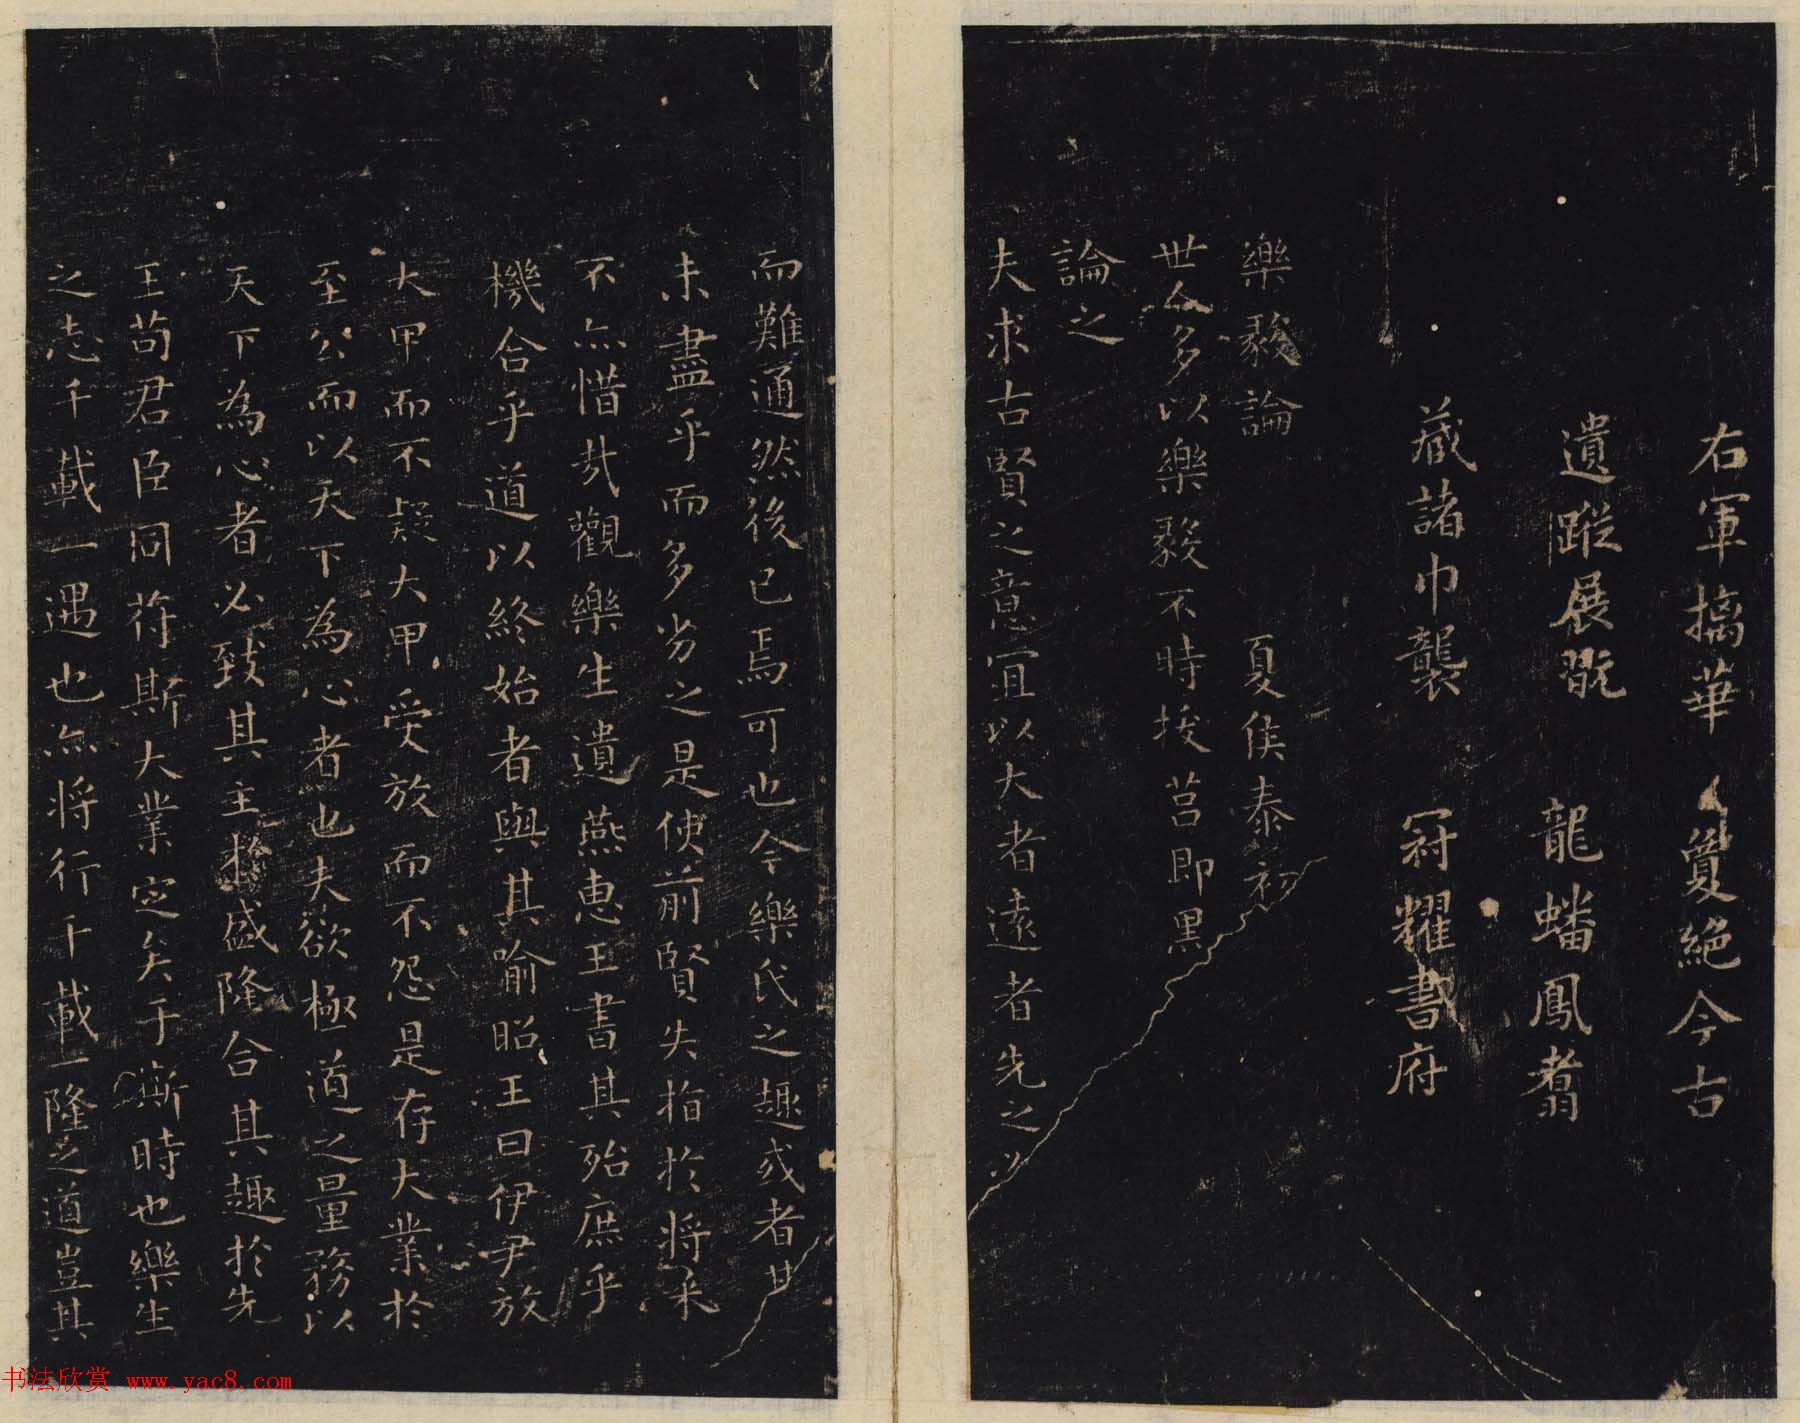 右軍摛華 敻絕今古
遺蹤展翫 龍蟠鳳翥
藏諸巾襲 冠耀書府
樂毅論 夏侯泰初
世人多以樂毅不時拔莒即墨
論之
夫求古賢之意宜以大者遠者先之必
而難通然後已焉可也今樂氏之趣或者其
未盡乎而多劣之是使前賢失指於將来
不亦惜哉觀樂生遺燕惠王書其殆庶乎
機合乎道以終始者與其喻昭王曰伊尹放
大甲而不疑大甲受放而不怨是存大業於
至公而以天下為心者也夫欲極道之量務以
天下為心者必致其主於盛隆合其趣於先
王苟君臣同符斯大業定矣于斯時也樂生
之志千載一遇也亦將行千載一隆之道豈其
书法欣赏 www.yac8.com